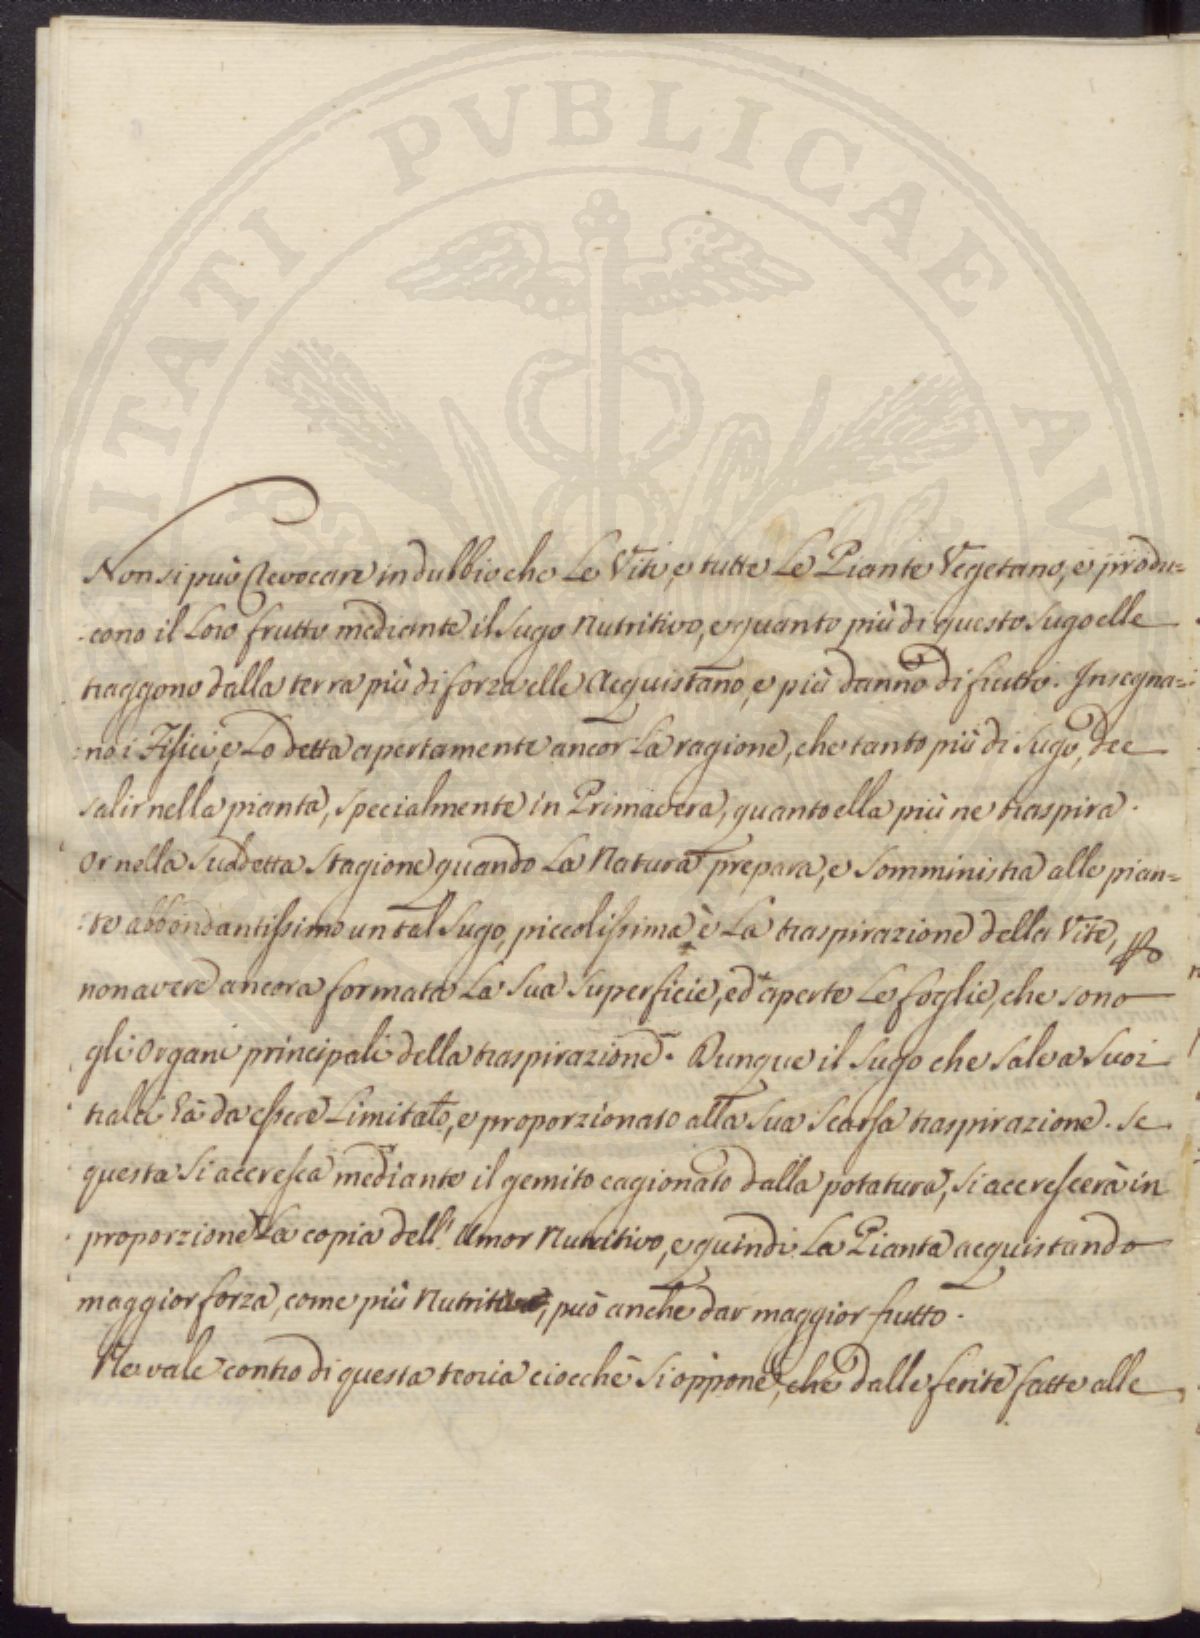 PVBLICAE
ITATI AV
Non si può revocare in dubbio che Le Viti, e tutte Le Piante Vegetano, e produ=
:cono il Loro frutto mediante il Sugo Nutritivo, e quanto più di questo Sugo elle
traggono dalla terra più di forza elle Acquistano, e più danno di frutto. Insegna=
:no i Fisici, e Lo detta apertamente ancor La ragione, che tanto più di Sugo, dee
salir nella pianta, specialmente in Primavera, quanto ella più ne traspira.
Or nella Suddetta Stagione quando La Natura prepara, e Somministra alle pian=
:te abbondantissimo un tal Sugo, piccolissima è La traspirazione della Vite, p
non avere ancora formata La Sua Superficie, ed aperte Le foglie, che sono
gli Organi principali della traspirazione. Dunque il Sugo che Sale a Suoi
tralci hà da essere Limitato, e proporzionato alla Sua Scarsa traspirazione. Se
questa Si accresca mediante il gemito cagionato dalla potatura, Si accrescerà in
proporzione La copia dell' Umor Nutritivo, e quindi La Pianta acquistando
maggior forza, come più Nutrita, può anche dar maggior frutto.
Ne vale contro di questa teoria ciocchè Si oppone, che dalle ferite fatte alle